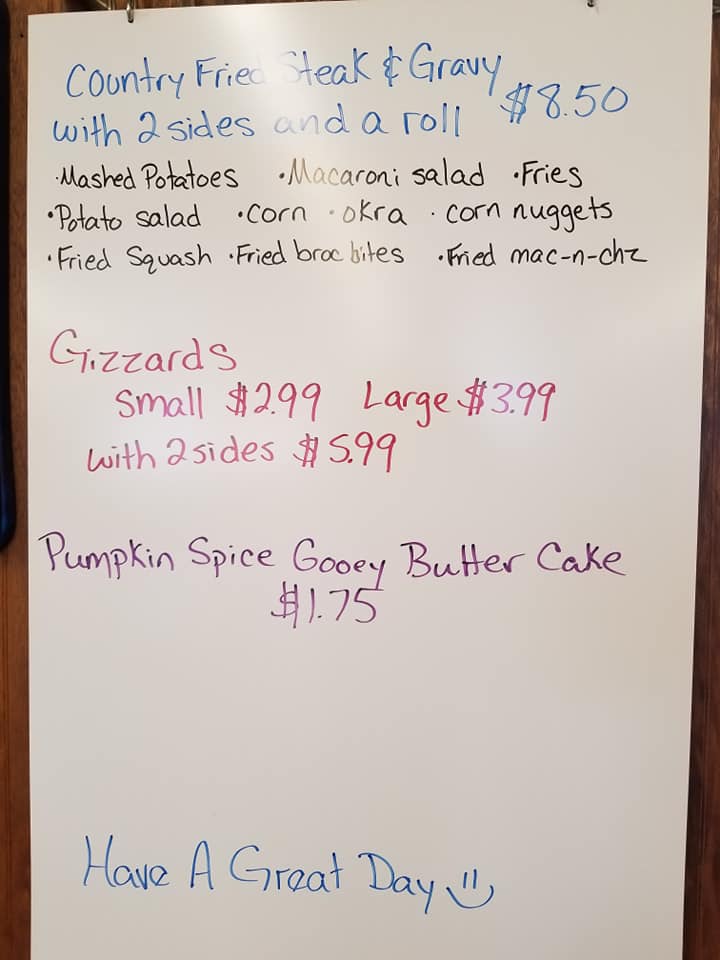 Country Fried Steak & Gravy
with 2 sides and a roll $8.50
·Mashed Potatoes ·Macaroni salad ·Fries
·Potato salad ·corn ·okra ·corn nuggets
·Fried Squash ·Fried broc bites ·Fried mac-n-chz
Gizzards
Small $2.99 Large $3.99
with 2 sides $5.99
Pumpkin Spice Gooey Butter Cake
$1.75
Have A Great Day